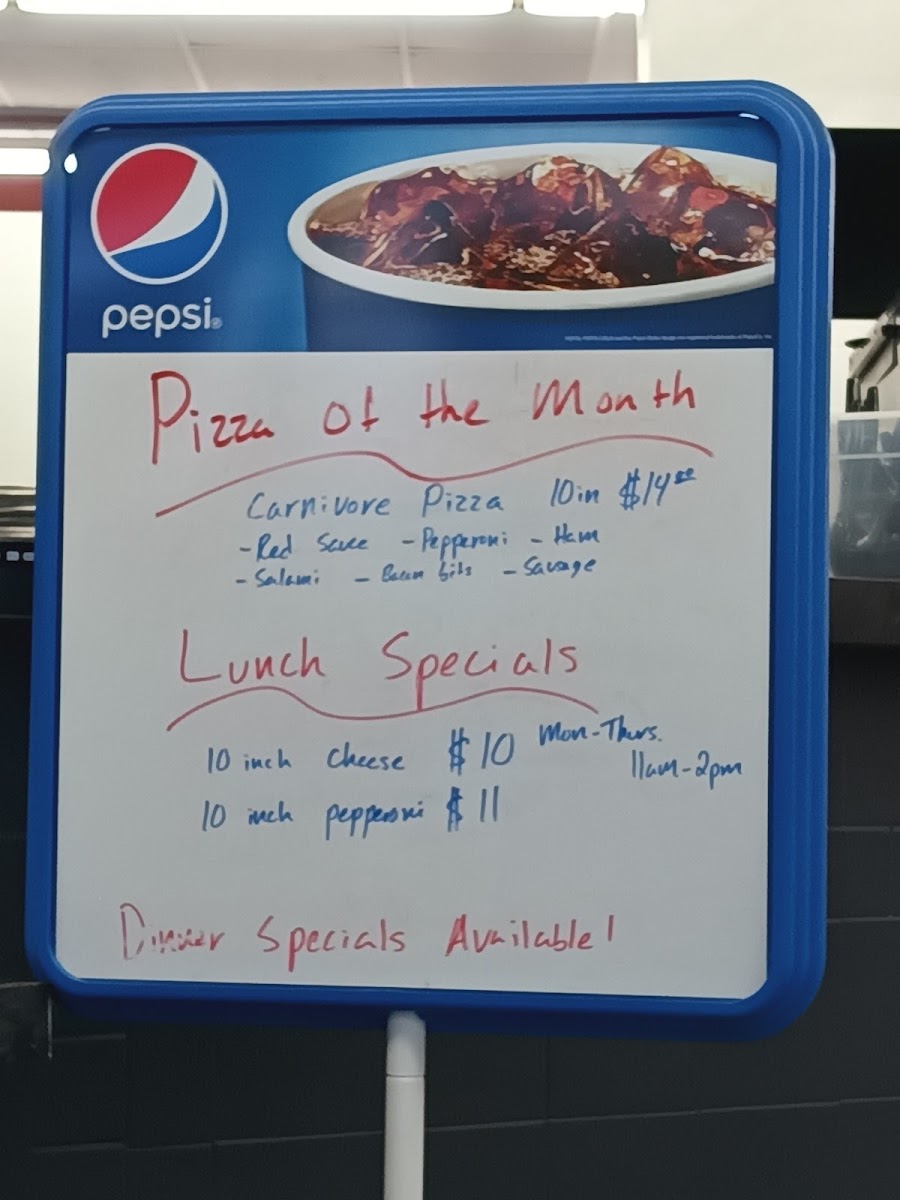 pepsi®
Pizza of the Month
Carnivore Pizza 10in $14
- Red Sauce - Pepperoni - Ham
- Salami - Bacon bits - Savage
Lunch Specials
10 inch cheese $10 Mon-Thurs.
11am-2pm
10 inch pepperoni $11
Dinner Specials Available!